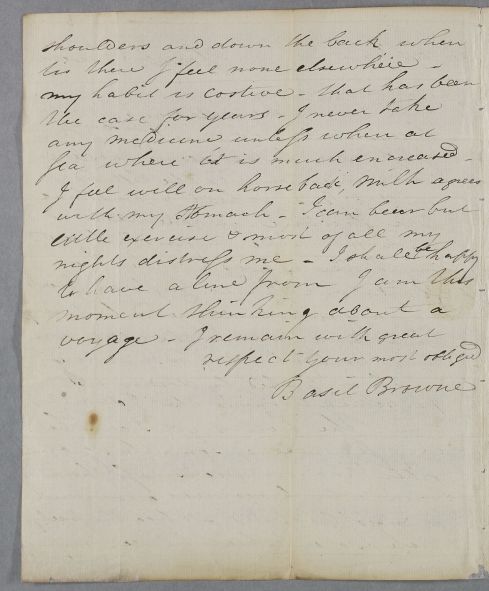 shoulders and down the back when
tis there I feel none elsewhere -
my habit is costive - that has been
the case for years - I never take
any medicine unless when at
Sea where it is much encreased -
I feel well on horseback, Milk agrees
with my Stomach - I can bear but
little exercise & most of all my
nights distress me - I shall be happy
to have a line from I am this
moment thinking about a
voyage - I remain with great
respect your most obliged
Basil Browne